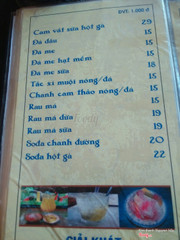 ĐVT: 1.000 đ
Cam vắt sữa hột gà 29
Đá dâu 15
Đá me 15
Đá me hạt mềm 15
Đá me sữa 18
Tắc xí muội nóng/đá 15
Chanh cam thảo nóng/đá 15
Rau má 15
Rau má dừa 19
Rau má sữa 19
Soda chanh đường 20
Soda hột gà 22
GIẢI KHÁT